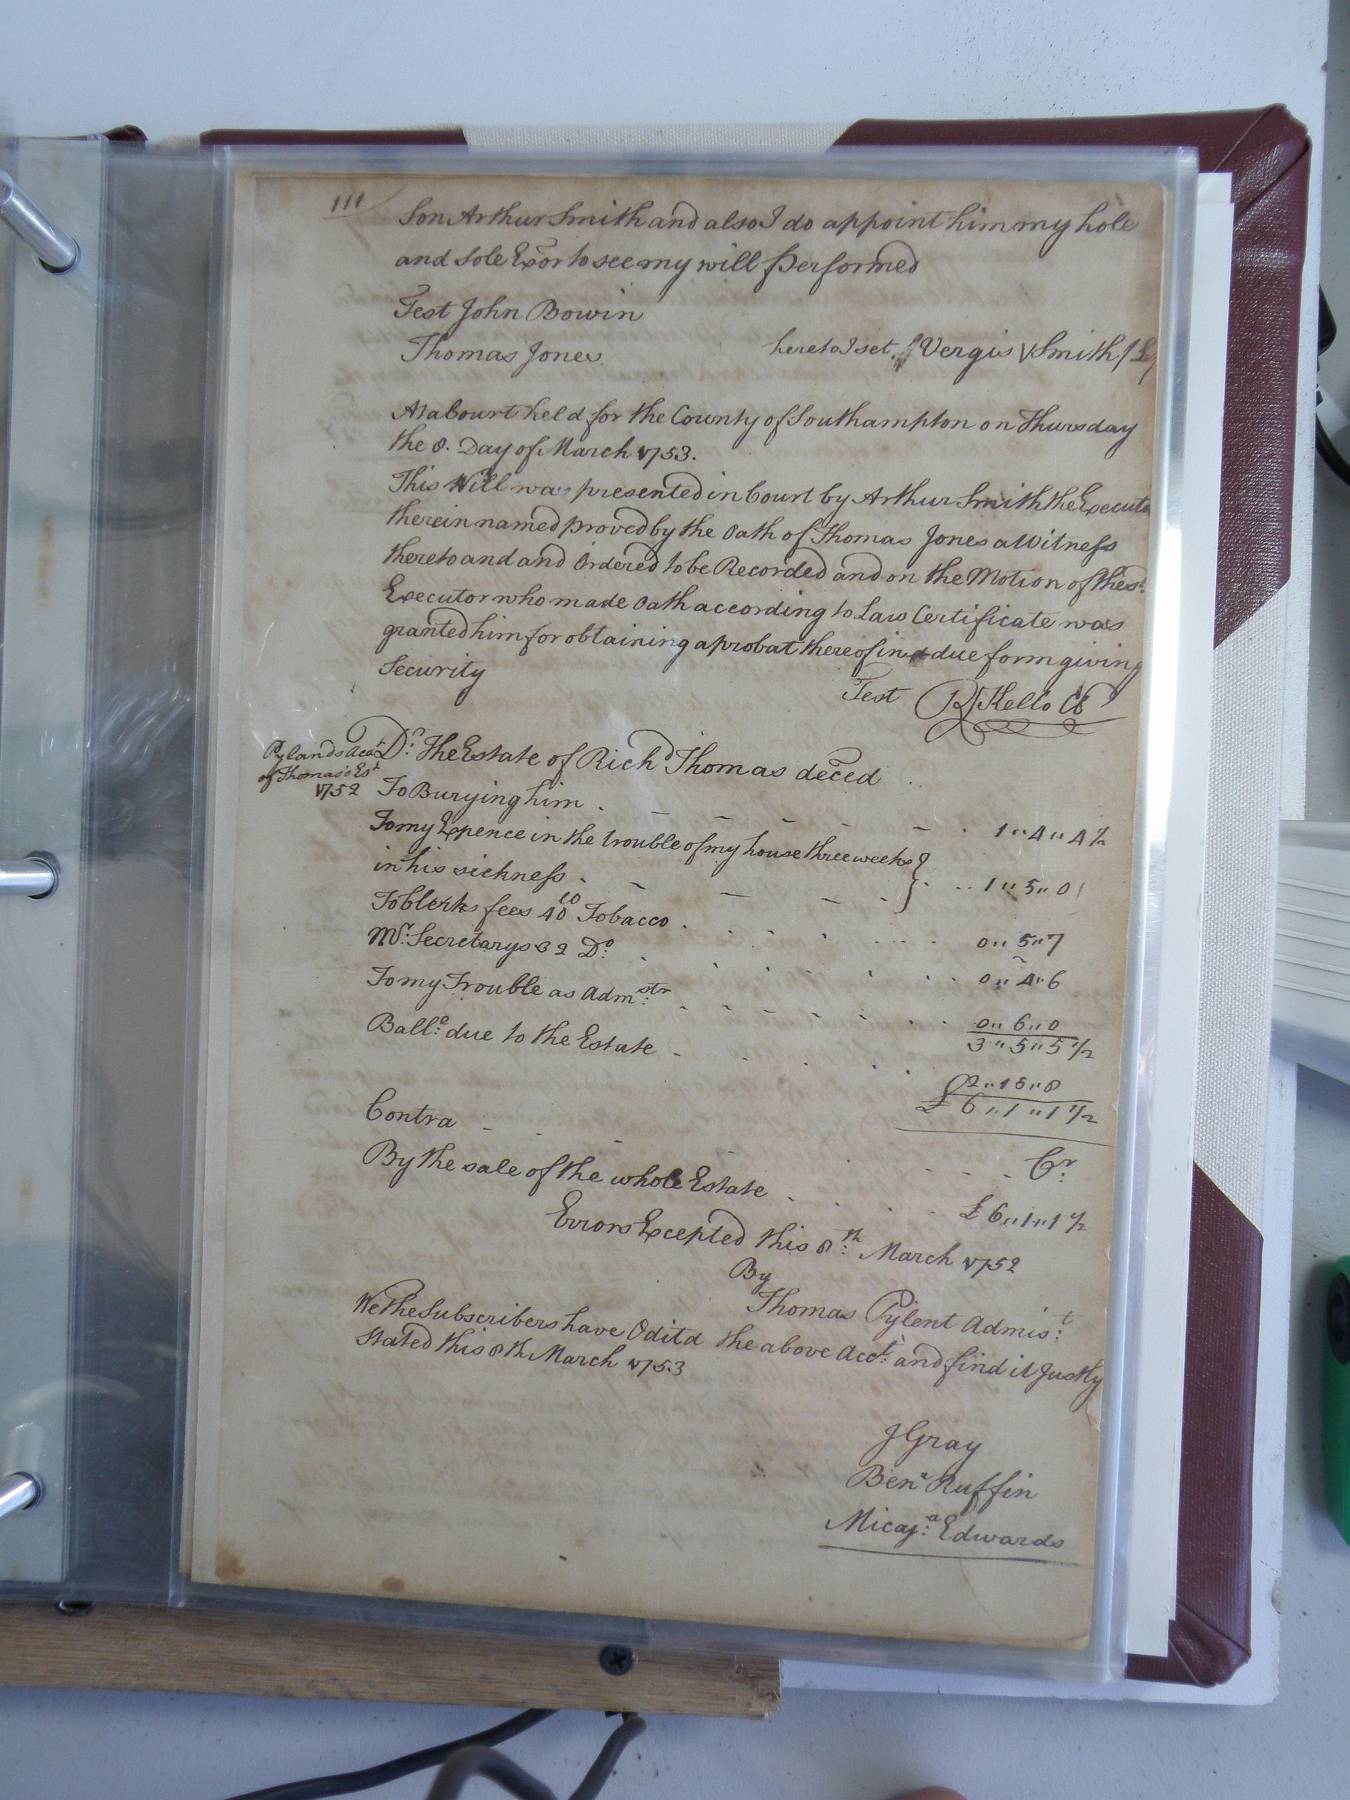 111
Son Arthur Smith and also I do appoint him my hole
and sole Exor to see my will performed
Test John Bowin
Thomas Jones hereto I set Vergis V Smith
At a Court held for the County of Southampton on Thursday
the 8. Day of March 1753.
This Will was presented in Court by Arthur Smith the Executo
therein named proved by the Oath of Thomas Jones a Witness
thereto and and Ordered to be Recorded and on the Motion of the sd.
Executor who made Oath according to Law Certificate was
granted him for obtaining a probat thereof in due form giving
Security Test R Kello
Pylands Acct. Dr. The Estate of Richd Thomas deced
of Thomas's Est
1752 To Burying him 1 " 4 " 4 1/2
To my Expence in the trouble of my house three weeks
in his sickness 1 " 5 " 0
To Clerks fees 40 lb Tobacco 0 " 5 " 7
Mr. Secretarys 32 Do. 0 " 4 " 6
To my Trouble as Admstr 0 " 6 " 0
3 " 5 " 5 1/2
Ballo. due to the Estate 2 " 15 " 8
£ 6 " 1 " 1 1/2
Contra Cr.
By the sale of the whole Estate £ 6 " 1 " 1 1/2
Errors Excepted this 8th. March 1752
By
Thomas Pylent Admist.
We the Subscribers have Oditd the above Acct. and find it Justly
Stated this 8th March 1753
J Gray
Benn Ruffin
Micaja. Edwards